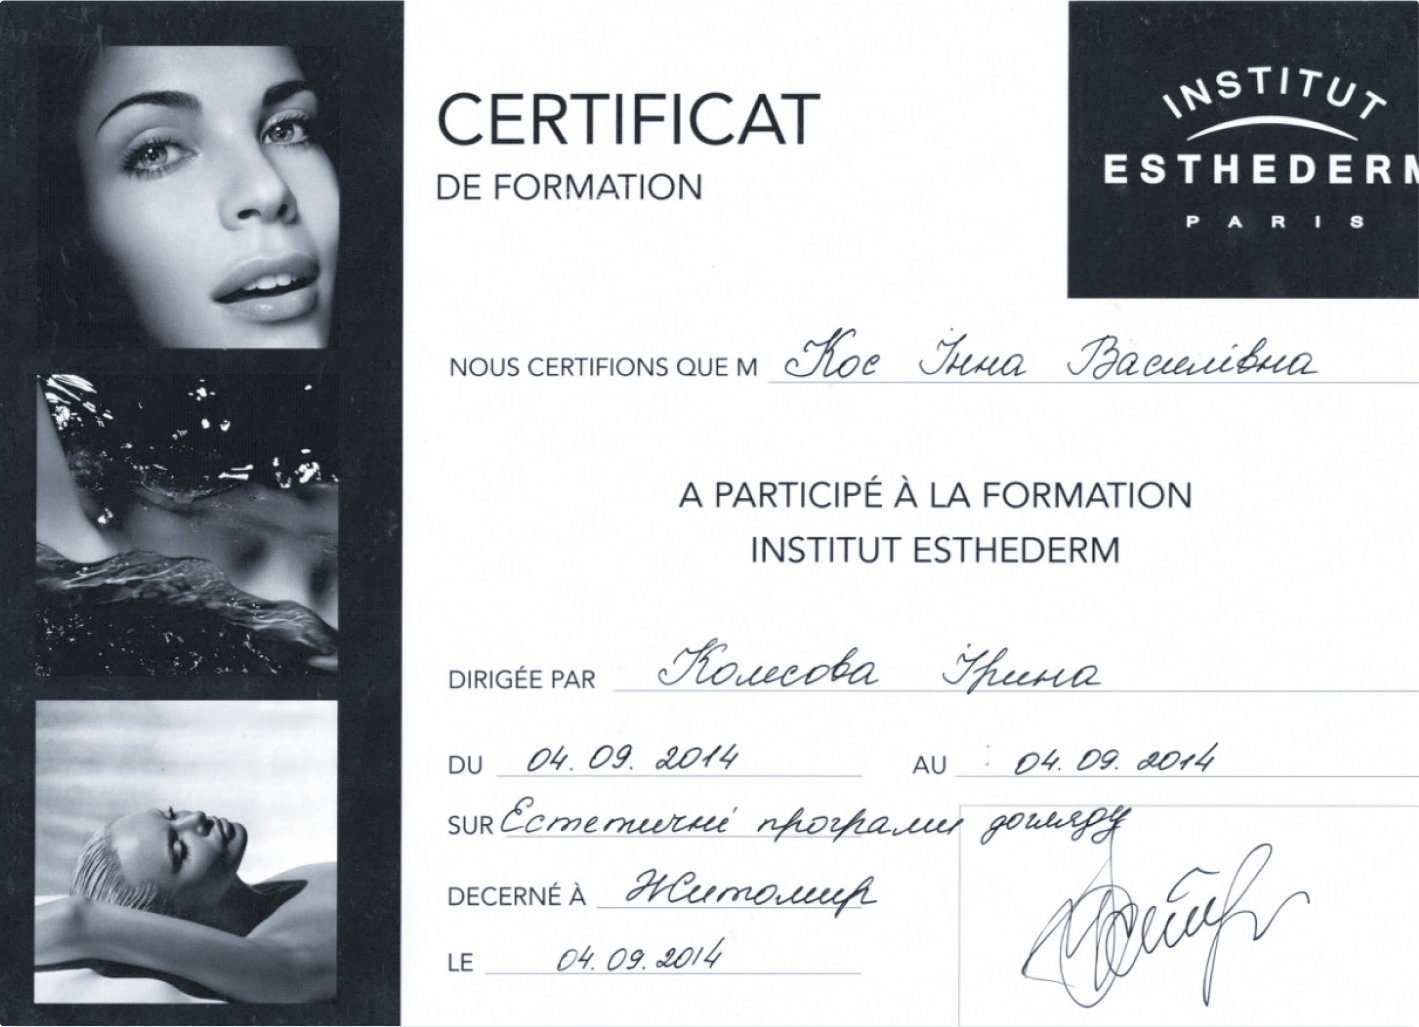 CERTIFICAT
DE FORMATION
INSTITUT
ESTHEDERM
PARIS
NOUS CERTIFIONS QUE M Кос Інна Василівна
A PARTICIPÉ À LA FORMATION
INSTITUT ESTHEDERM
DIRIGÉE PAR Колесова Ірина
DU 04.09.2014 AU : 04.09.2014
SUR Естетичні програми догляду
DECERNÉ À Житомир
LE 04.09.2014